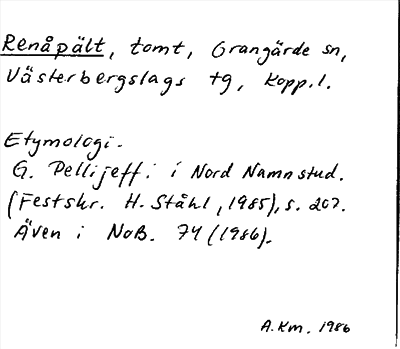 Renåpält, tomt, Grangärde sn,
Västerbergslags tg, Kopp.l.
Etymologi.
G. Pellijeff i i Nord Namnstud.
(Festskr. H. Ståhl, 1985), s. 207.
Även i NoB. 74 (1986).
A.Km. 1986